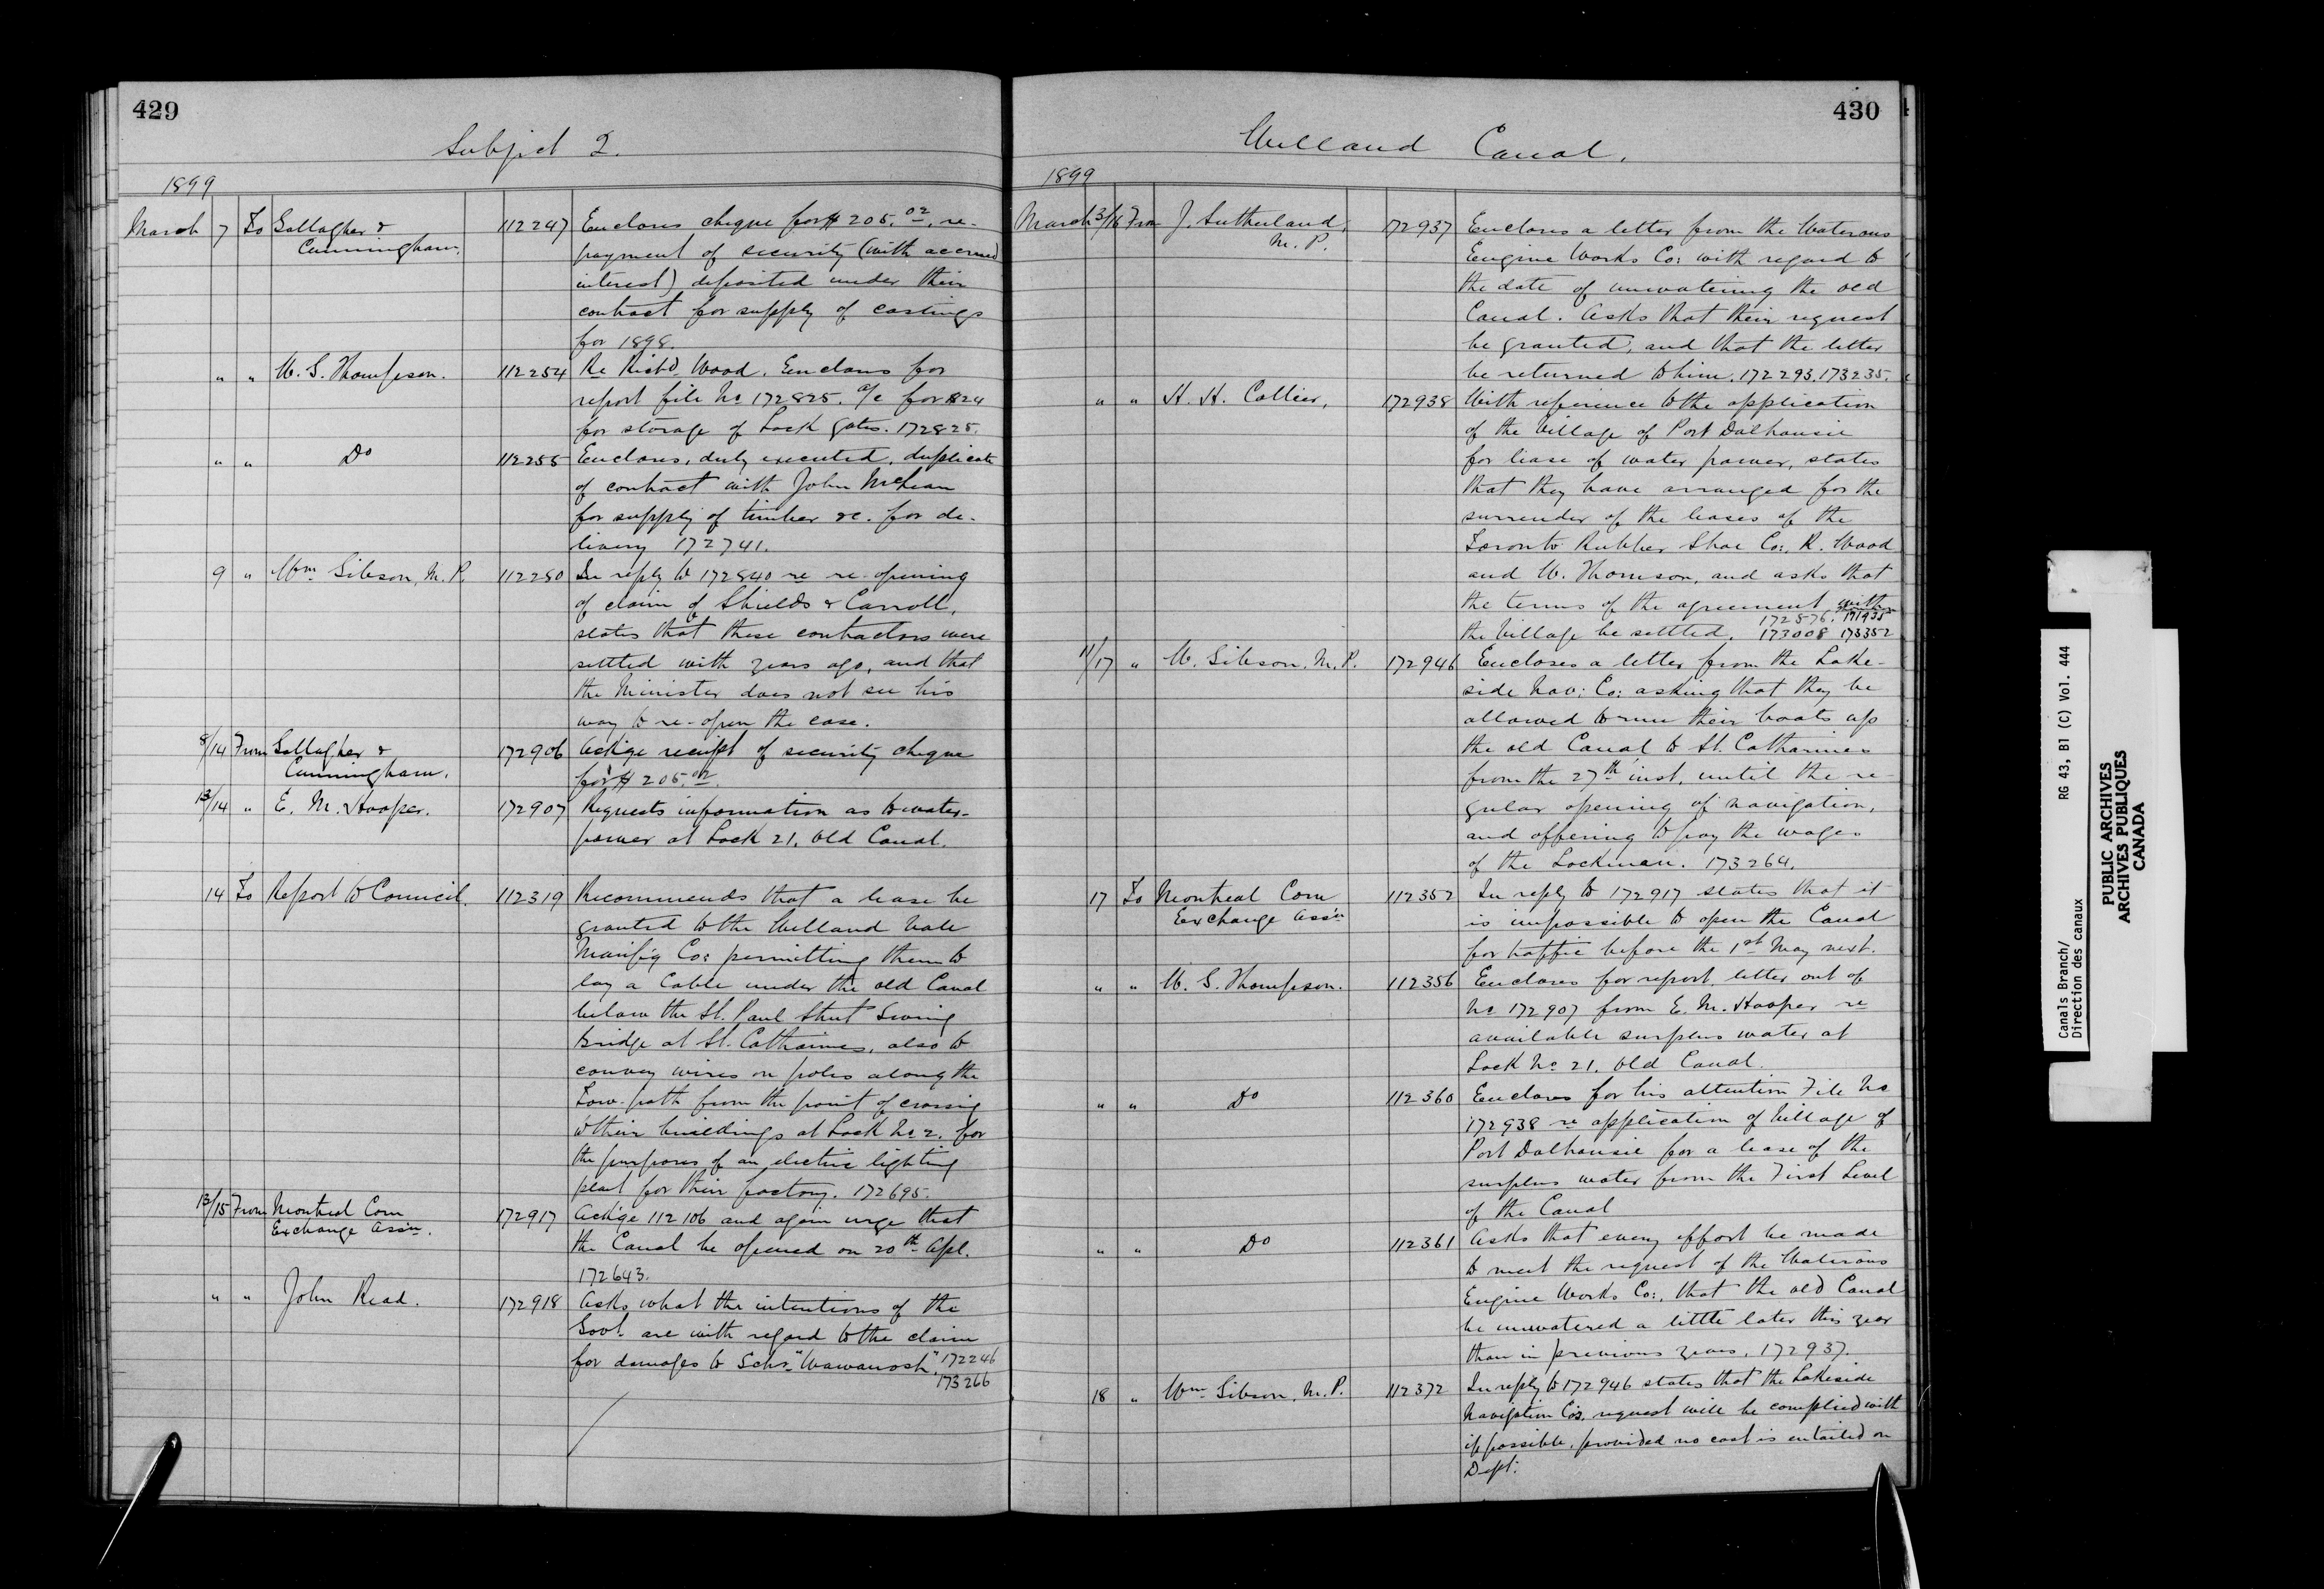 429
Subject 2.
1899
March 7 To Gallagher & 112247 Encloses cheque for $205.02, re-
Cunningham. payment of security (with accrued
interest) deposited under their
contract for supply of castings
for 1898.
" " W. G. Thompson. 112254 Re Richd. Wood. Encloses for
report file No 172825. a/c for $24
for storage of Lock gates. 172825.
" " Do 112255 Encloses, duly executed, duplicate
of contract with John McLean
for supply of timber &c. for de-
livery 172741.
9 " Wm. Gibson, M.P. 112280 In reply to 172840 re re-opening
of claim of Shields & Carroll,
states that these contractors were
settled with years ago, and that
the Minister does not see his
way to re-open the case.
8/14 From Gallagher & 172906 Ackge receipt of security cheque
Cunningham. for $205.02.
13/14 " E. M. Hooper. 172907 Requests information as to water-
power at Lock 21, Old Canal.
14 To Report to Council. 112319 Recommends that a lease be
granted to the Welland Vale
Manfg Co: permitting them to
lay a Cable under the old Canal
below the St. Paul Street Swing
Bridge at St. Catharines, also to
convey wires on poles along the
Tow-path from the point of crossing
to their buildings at Lock No 2. for
the purposes of an electric lighting
plant for their factory. 172695.
13/15 From Montreal Corn 172917 Ackge 112106 and again urge that
Exchange Assn. the Canal be opened on 20th Apl.
172643.
" " John Read. 172918 Asks what the intentions of the
Govt. are with regard to the claim
for damages to Schr. "Wawanosh". 172246
173266
430
Welland Canal.
1899
March 3/16 From J. Sutherland, 172937 Encloses a letter from the Waterous
M.P. Engine Works Co: with regard to
the date of unwatering the old
Canal. Asks that their request
be granted, and that the letter
be returned to him. 172293. 173235.
" " H. H. Collier, 172938 With reference to the application
of the Village of Port Dalhousie
for lease of water power, states
that they have arranged for the
surrender of the leases of the
Toronto Rubber Shoe Co:, R. Wood
and W. Thomson, and asks that
the terms of the agreement with
172876. 171935
the Village be settled. 173008 173352
11/17 " W. Gibson, M.P. 172946 Encloses a letter from the Lake-
side Nav: Co: asking that they be
allowed to run their boats up
the old Canal to St. Catharines
from the 27th inst. until the re-
gular opening of navigation,
and offering to pay the wages
of the Lockman. 173264.
17 To Montreal Corn 112352 In reply to 172917 states that it
Exchange Assn is impossible to open the Canal
for traffic before the 1st May next.
" " W. G. Thompson. 112356 Encloses for report, letter out of
No 172907 from E. M. Hooper re
available surplus water at
Lock No 21. Old Canal.
" " Do 112360 Encloses for his attention File No
172938 re application of Village of
Port Dalhousie for a lease of the
surplus water from the First Level
of the Canal
" " Do 112361 Asks that every effort be made
to meet the request of the Waterous
Engine Works Co:, that the old Canal
be unwatered a little later this year
than in previous years. 172937.
18 " Wm. Gibson, M.P. 112372 In reply to 172946 states that the Lakeside
Navigation Co's. request will be complied with
if possible, provided no cost is entailed on
Dept.
Canals Branch/ RG 43, B1 (C) Vol. 444
Direction des canaux
PUBLIC ARCHIVES
ARCHIVES PUBLIQUES
CANADA